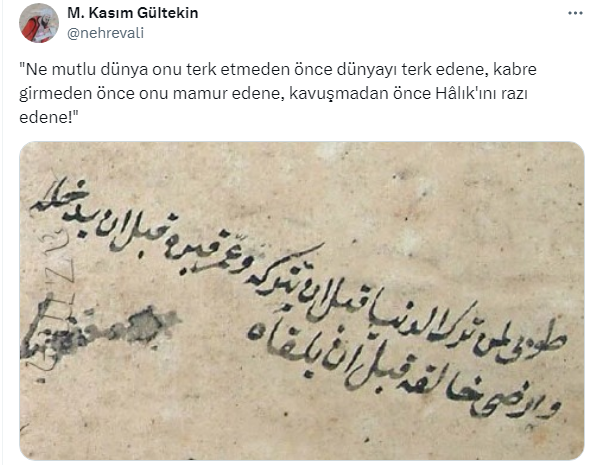 M. Kasım Gültekin
@nehrevali
"Ne mutlu dünya onu terk etmeden önce dünyayı terk edene, kabre
girmeden önce onu mamur edene, kavuşmadan önce Hâlık'ını razı
edene!"
طوبى لمن ترك الدنيا قبل ان تتركه وعمّر قبره قبل ان يدخله
وارضى خالقه قبل ان يلقاه